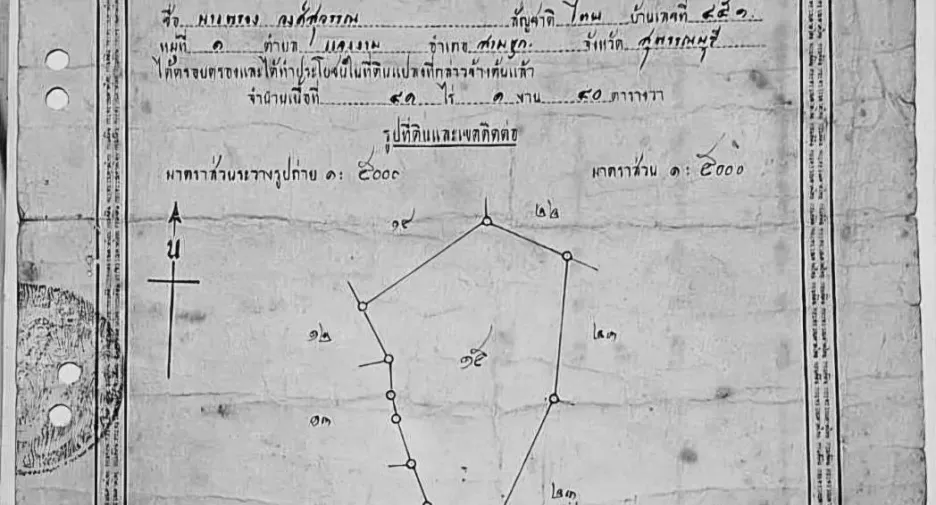 ชื่อ นายตรอง วงศ์สุวรรณ สัญชาติ ไทย บ้านเลขที่
หมู่ที่ ๑ ตำบล อำเภอ สามชุก จังหวัด สุพรรณบุรี
ได้ครอบครองและได้ทำประโยชน์ในที่ดินแปลงที่กล่าวข้างต้นแล้ว
จำนวนเนื้อที่ ๔๑ ไร่ ๑ งาน ๙๐ ตารางวา
รูปที่ดินและเขตติดต่อ
มาตราส่วนระวางรูปถ่าย ๑: ๕๐๐๐ มาตราส่วน ๑: ๕๐๐๐
๒๒
น
๑๒ ๑๕ ๒๓
๑๓
๒๓